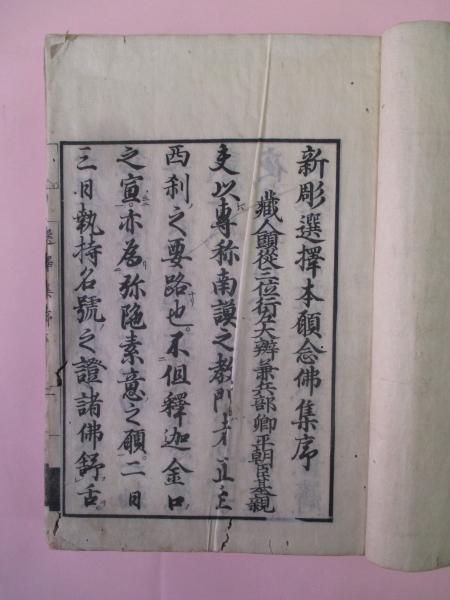 新彫選擇本願念佛集序
藏人頭從三位行左大辨兼兵部卿平朝臣基親
夫以專称南謨之教門者直至
西刹之要路也不但釋迦金口
之宣亦為弥陁素意之願二日
三日執持名號之證諸佛舒舌